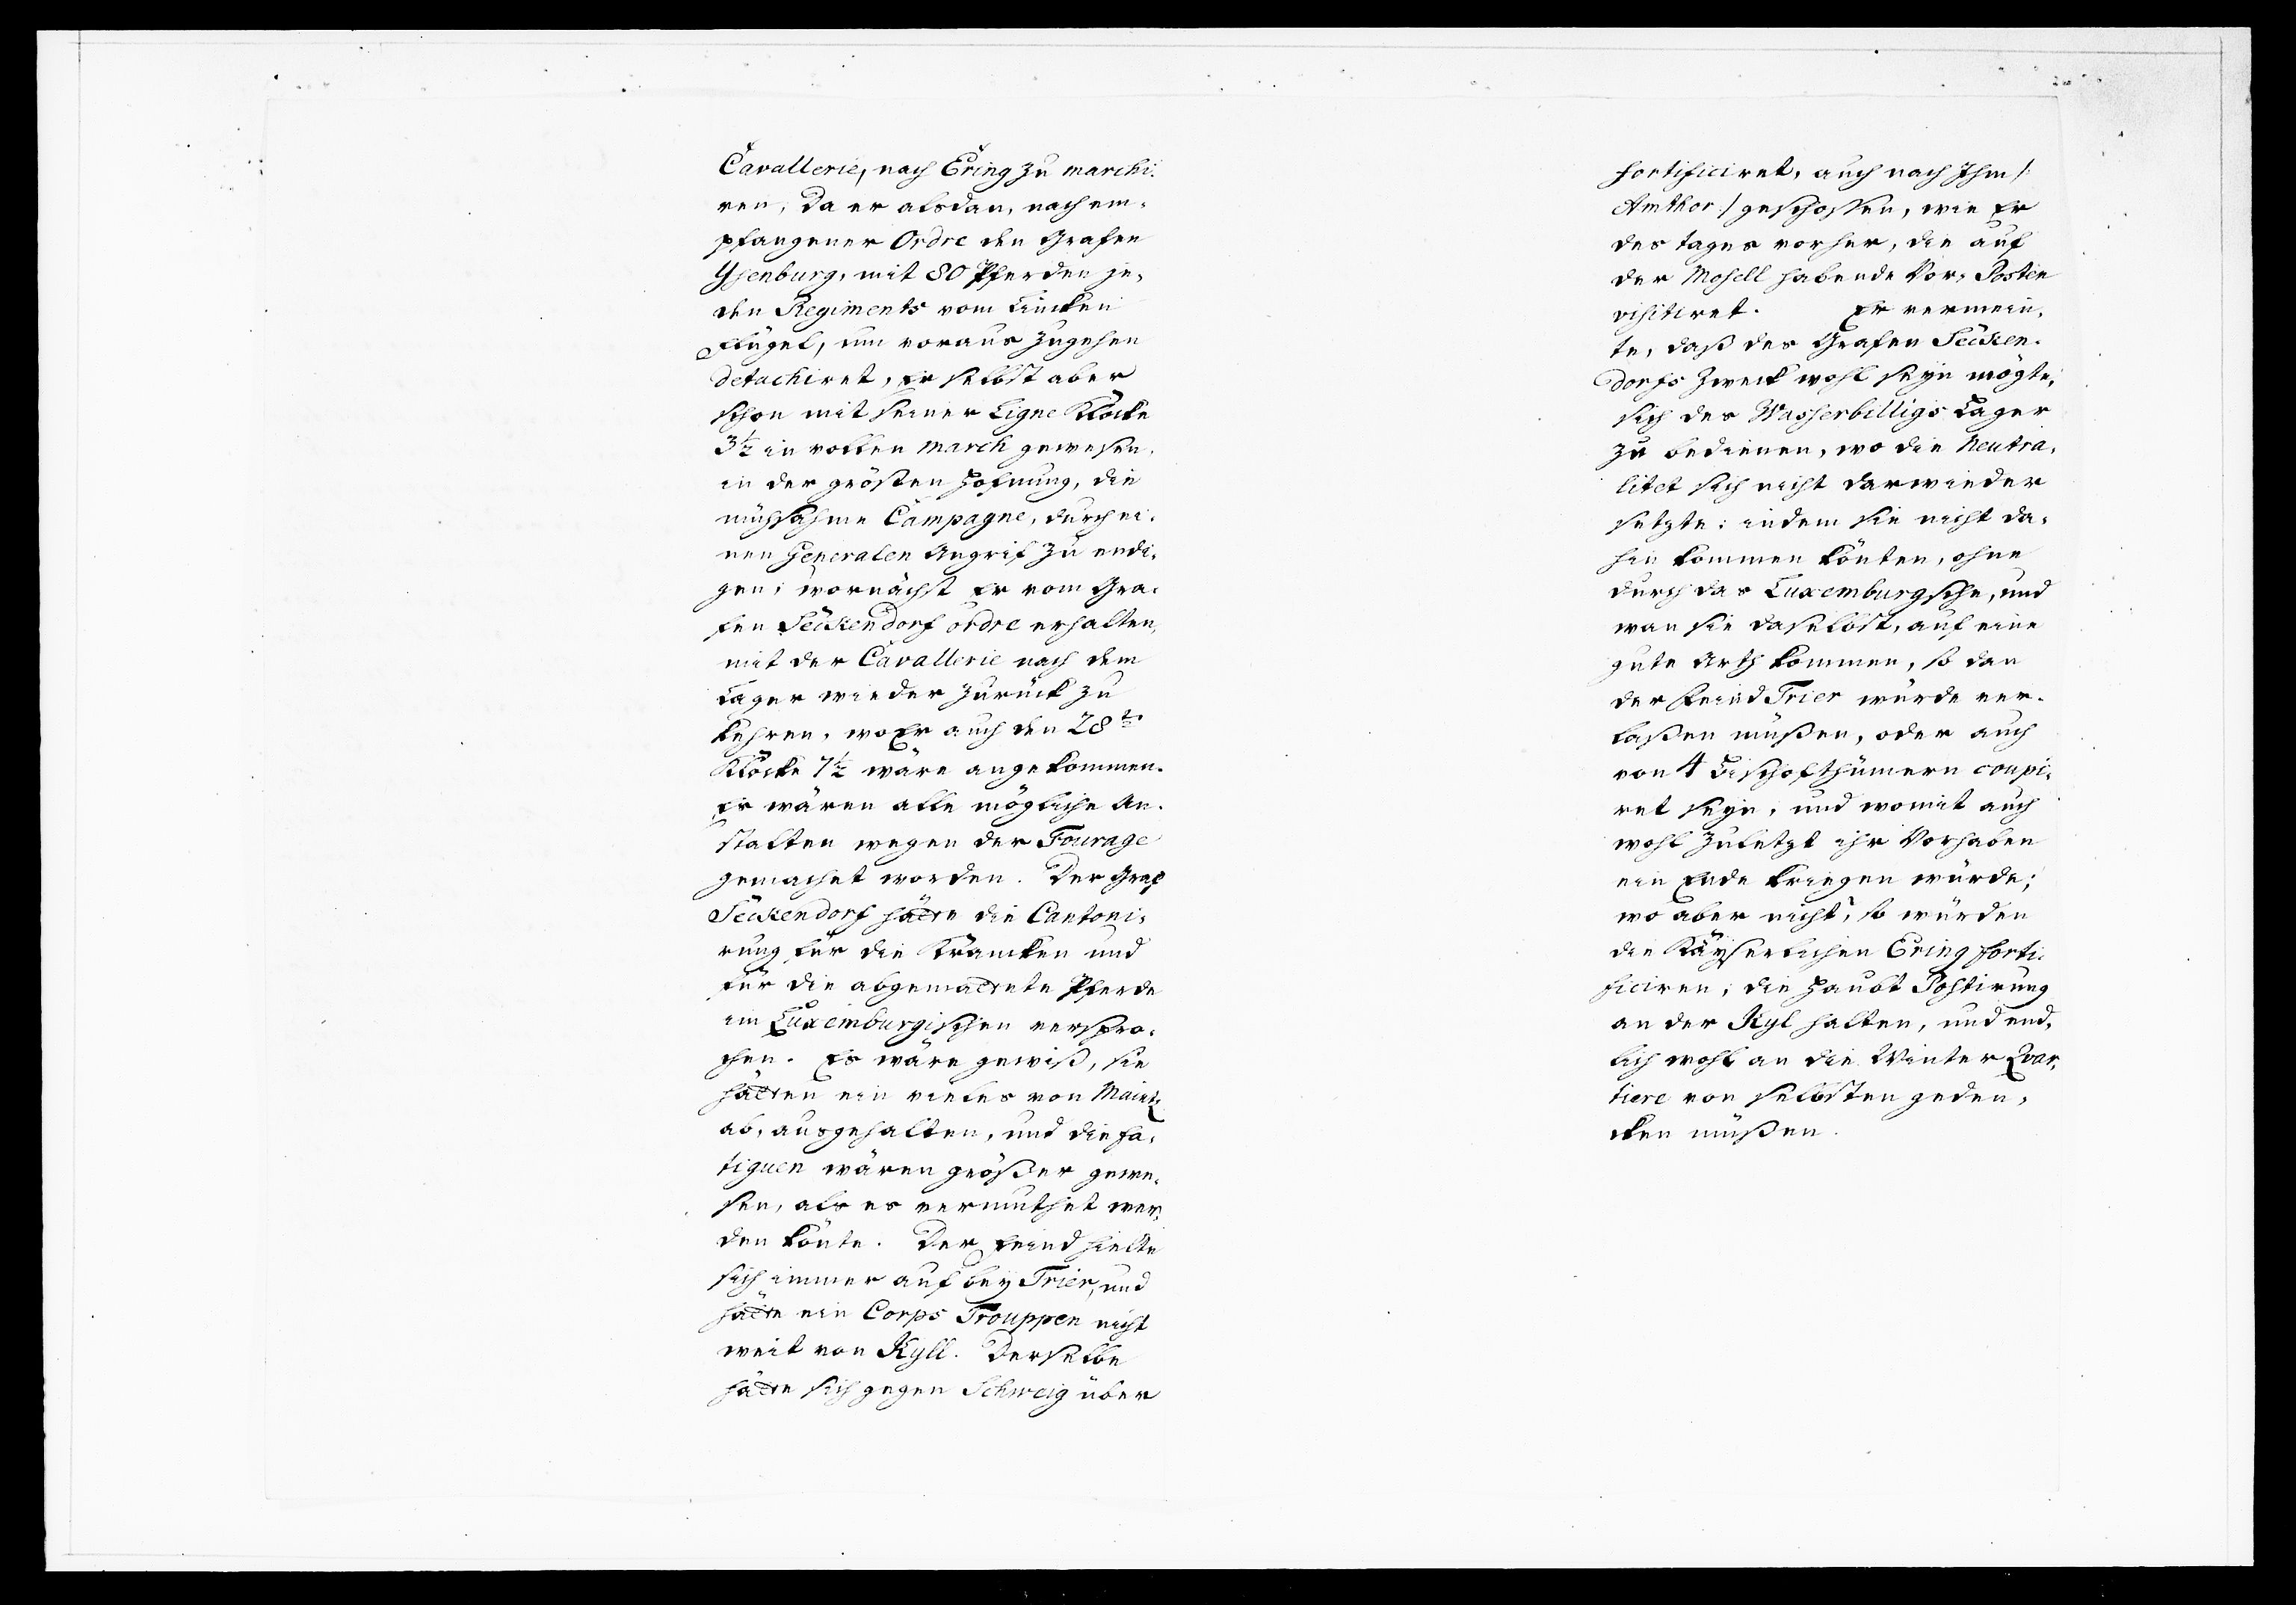 Cavallerie, nach Ering zu marchi¬
ren, da er alsdan, nach em¬
pfangener Ordre den Grafen
Ysenburg, mit 80 Pferden je¬
den Regiments vom Lincken
Flügel, um voraus zugehen
detachiret, Er selbst aber
schon mit seiner Ligne Klocke
3½ in vollen march gewesen,
in der grösten Hofnung, die
mühsahme Campagne, durch ei¬
nen Generalen Angrif zu endi¬
gen; wornächst Er vom Gra¬
fen Seckendorf ordre erhalten,
mit der Cavallerie nach dem
Lager wieder zurück zu
kehren, wo Er auch den 28t.
Klocke 7½ wäre angekommen.
Es wären alle mögliche An¬
stalten wegen der Fourage
gemachet worden. Der Graf
Seckendorf hätte die Cantoni¬
rung für die Krancken und
für die abgemattete Pferde
im Luxemburgischen verspro¬
chen. Es wäre gewiß, sie
hätten ein vieles von Maintz
ab, ausgehalten, und die fa¬
tiguen wären größer gewe¬
sen, als es vermuthet wer¬
den könte. Der Feind hielte
sich immer auf bey Trier, und
hätte ein Corps Trouppen nicht
weit von Kyll. Derselbe
hätte sich gegen Schweig über
fortificiret, auch nach Ihm /:
Amthor :/ geschossen, wie Er
des tages vorher, die auf
der Mosell habende Vor-Posten
visitiret. Er vermein¬
te, daß des Grafen Secken¬
dorfs Zweck wohl seyn mögte,
sich des Wasserbilligs Lager
zu bedienen, wo die Neutra¬
litet sich nicht darwieder
setzte; indem sie nicht da¬
hin kommen könten, ohne
durch das Luxemburgsche, und
wan sie daselbst, auf eine
gute Arth kommen, so dan
der Feind Trier würde ver¬
laßen müßen, oder auch
von 4 Bischofthümern coupi¬
ret seyn, und womit auch
wohl zuletzt ihr Vorhaben
ein Ende kriegen würde;
wo aber nicht, so würden
die Käyserlichen Ering forti¬
ficiren, die Haubt Postirung
an der Kyl halten, und end¬
lich wohl an die Winter Qvar¬
tiere von selbsten geden¬
cken müßen.